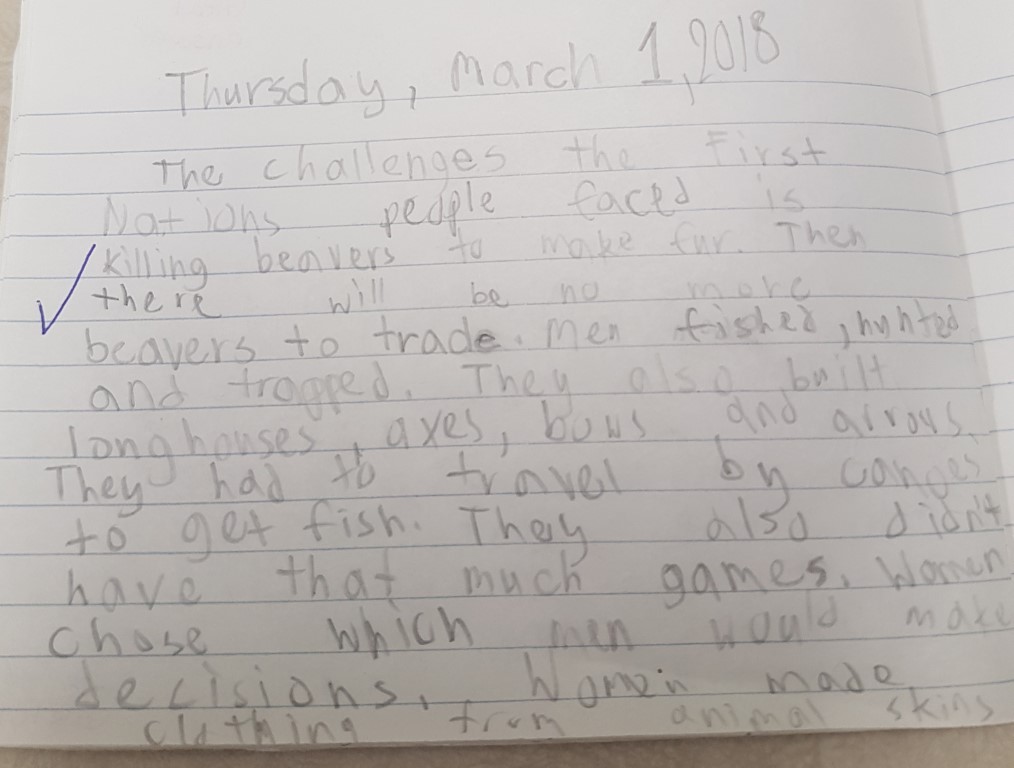 Thursday, March 1, 2018
The challenges the First
Nations people faced is
killing beavers to make fur. Then
there will be no more
beavers to trade. Men fished, hunted
and trapped. They also built
longhouses, axes, bows and arrows.
They had to travel by canoes
to get fish. They also didn't
have that much games. Women
chose which men would make
decisions. Women made
clothing from animal skins